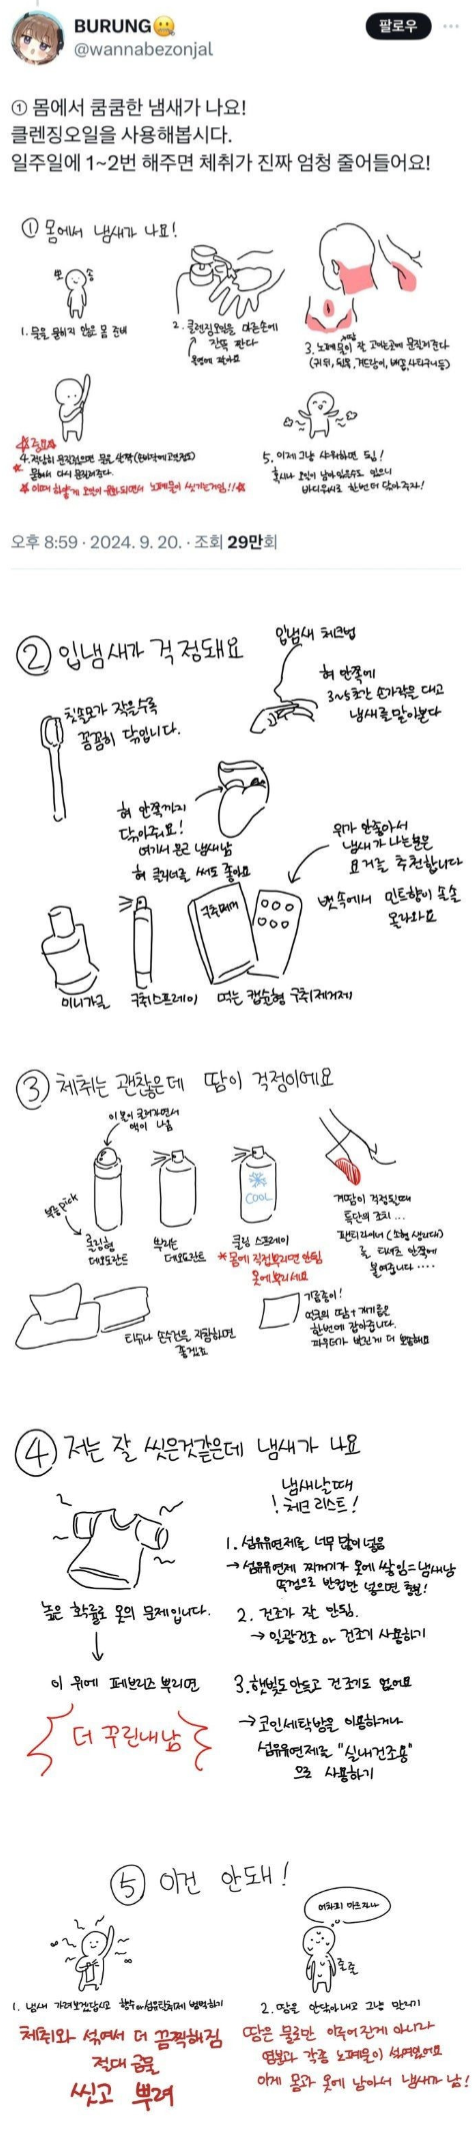 BURUNG🤐
@wannabezonjal
팔로우
① 몸에서 쿰쿰한 냄새가 나요!
클렌징오일을 사용해봅시다.
일주일에 1~2번 해주면 체취가 진짜 엄청 줄어들어요!
① 몸에서 냄새가 나요!
뽀송
1. 물을 묻히지 않은 몸 준비
2. 클렌징오일을 마른손에
잔뜩 짠다
3. 노폐물이 잘 고이는곳에 문질러준다
(귀 뒤, 뒷목, 겨드랑이, 배꼽, 사타구니 등)
☆중요☆
4. 적당히 문질렀으면 물을 살짝
묻혀서 다시 문질러준다.
☆이때 하얗게 오일이 유화되면서 노폐물이 씻기는거임!!☆
5. 이제 그냥 샤워하면 됨!
혹시나 오일이 남아있을수도 있으니
바디워시로 한번 더 닦아주자!
오후 8:59 · 2024. 9. 20. · 조회 29만회
② 입냄새가 걱정돼요
입냄새 체크법
혀 안쪽에
3~5초간 손가락을 대고
냄새를 맡아본다
칫솔모가 작을수록
꼼꼼히 닦입니다.
혀 안쪽까지
닦아주세요!
여기서 은근 냄새남
혀 클리너를 써도 좋아요
위가 안좋아서
냄새가 나는분은
요거를 추천합니다
뱃속에서 민트향이 솔솔
올라와요
구취제거
미니가글
구취스프레이
먹는 캡슐형 구취제거제
③ 체취는 괜찮은데 땀이 걱정이에요
이 볼이 굴러가면서
액이 나옴
COOL
롤링형
데오도란트
뿌리는
데오도란트
쿨링 스프레이
*몸에 직접뿌리면 안됨
옷에뿌리세요
겨땀이 걱정될때
특단의 조치...
팬티라이너 (소형 생리대)
를 티셔츠 안쪽에
붙여줍니다....
티슈나 손수건을 지참하면
좋겠죠
기름종이!
얼굴의 땀+개기름을
한번에 잡아줍니다.
파우더가 발린게 더 뽀송해요
④ 저는 잘 씻은것같은데 냄새가 나요
냄새날때
!체크 리스트!
1. 섬유유연제를 너무 많이 넣음
→ 섬유유연제 찌꺼기가 옷에 쌓임=냄새남
뚜껑으로 반컵만 넣으면 충분!
높은 확률로 옷의 문제입니다.
2. 건조가 잘 안됨.
→ 일광건조 or 건조기 사용하기
이 위에 페브리즈 뿌리면
더 꾸린내남
3. 햇빛도 안들고 건조기도 없어요
→ 코인세탁방을 이용하거나
섬유유연제를 "실내건조용"
으로 사용하기
⑤ 이건 안돼!
어차피 마르잖아
줄줄
1. 냄새 가려보겠답시고 향수or섬유탈취제 범벅하기
체취와 섞여서 더 끔찍해짐
절대 금물
씻고 뿌려
2. 땀을 안닦아내고 그냥 말리기
땀은 물로만 이루어진게 아니라
염분과 각종 노폐물이 섞여있어요
이게 몸과 옷에 남아서 냄새가 남!